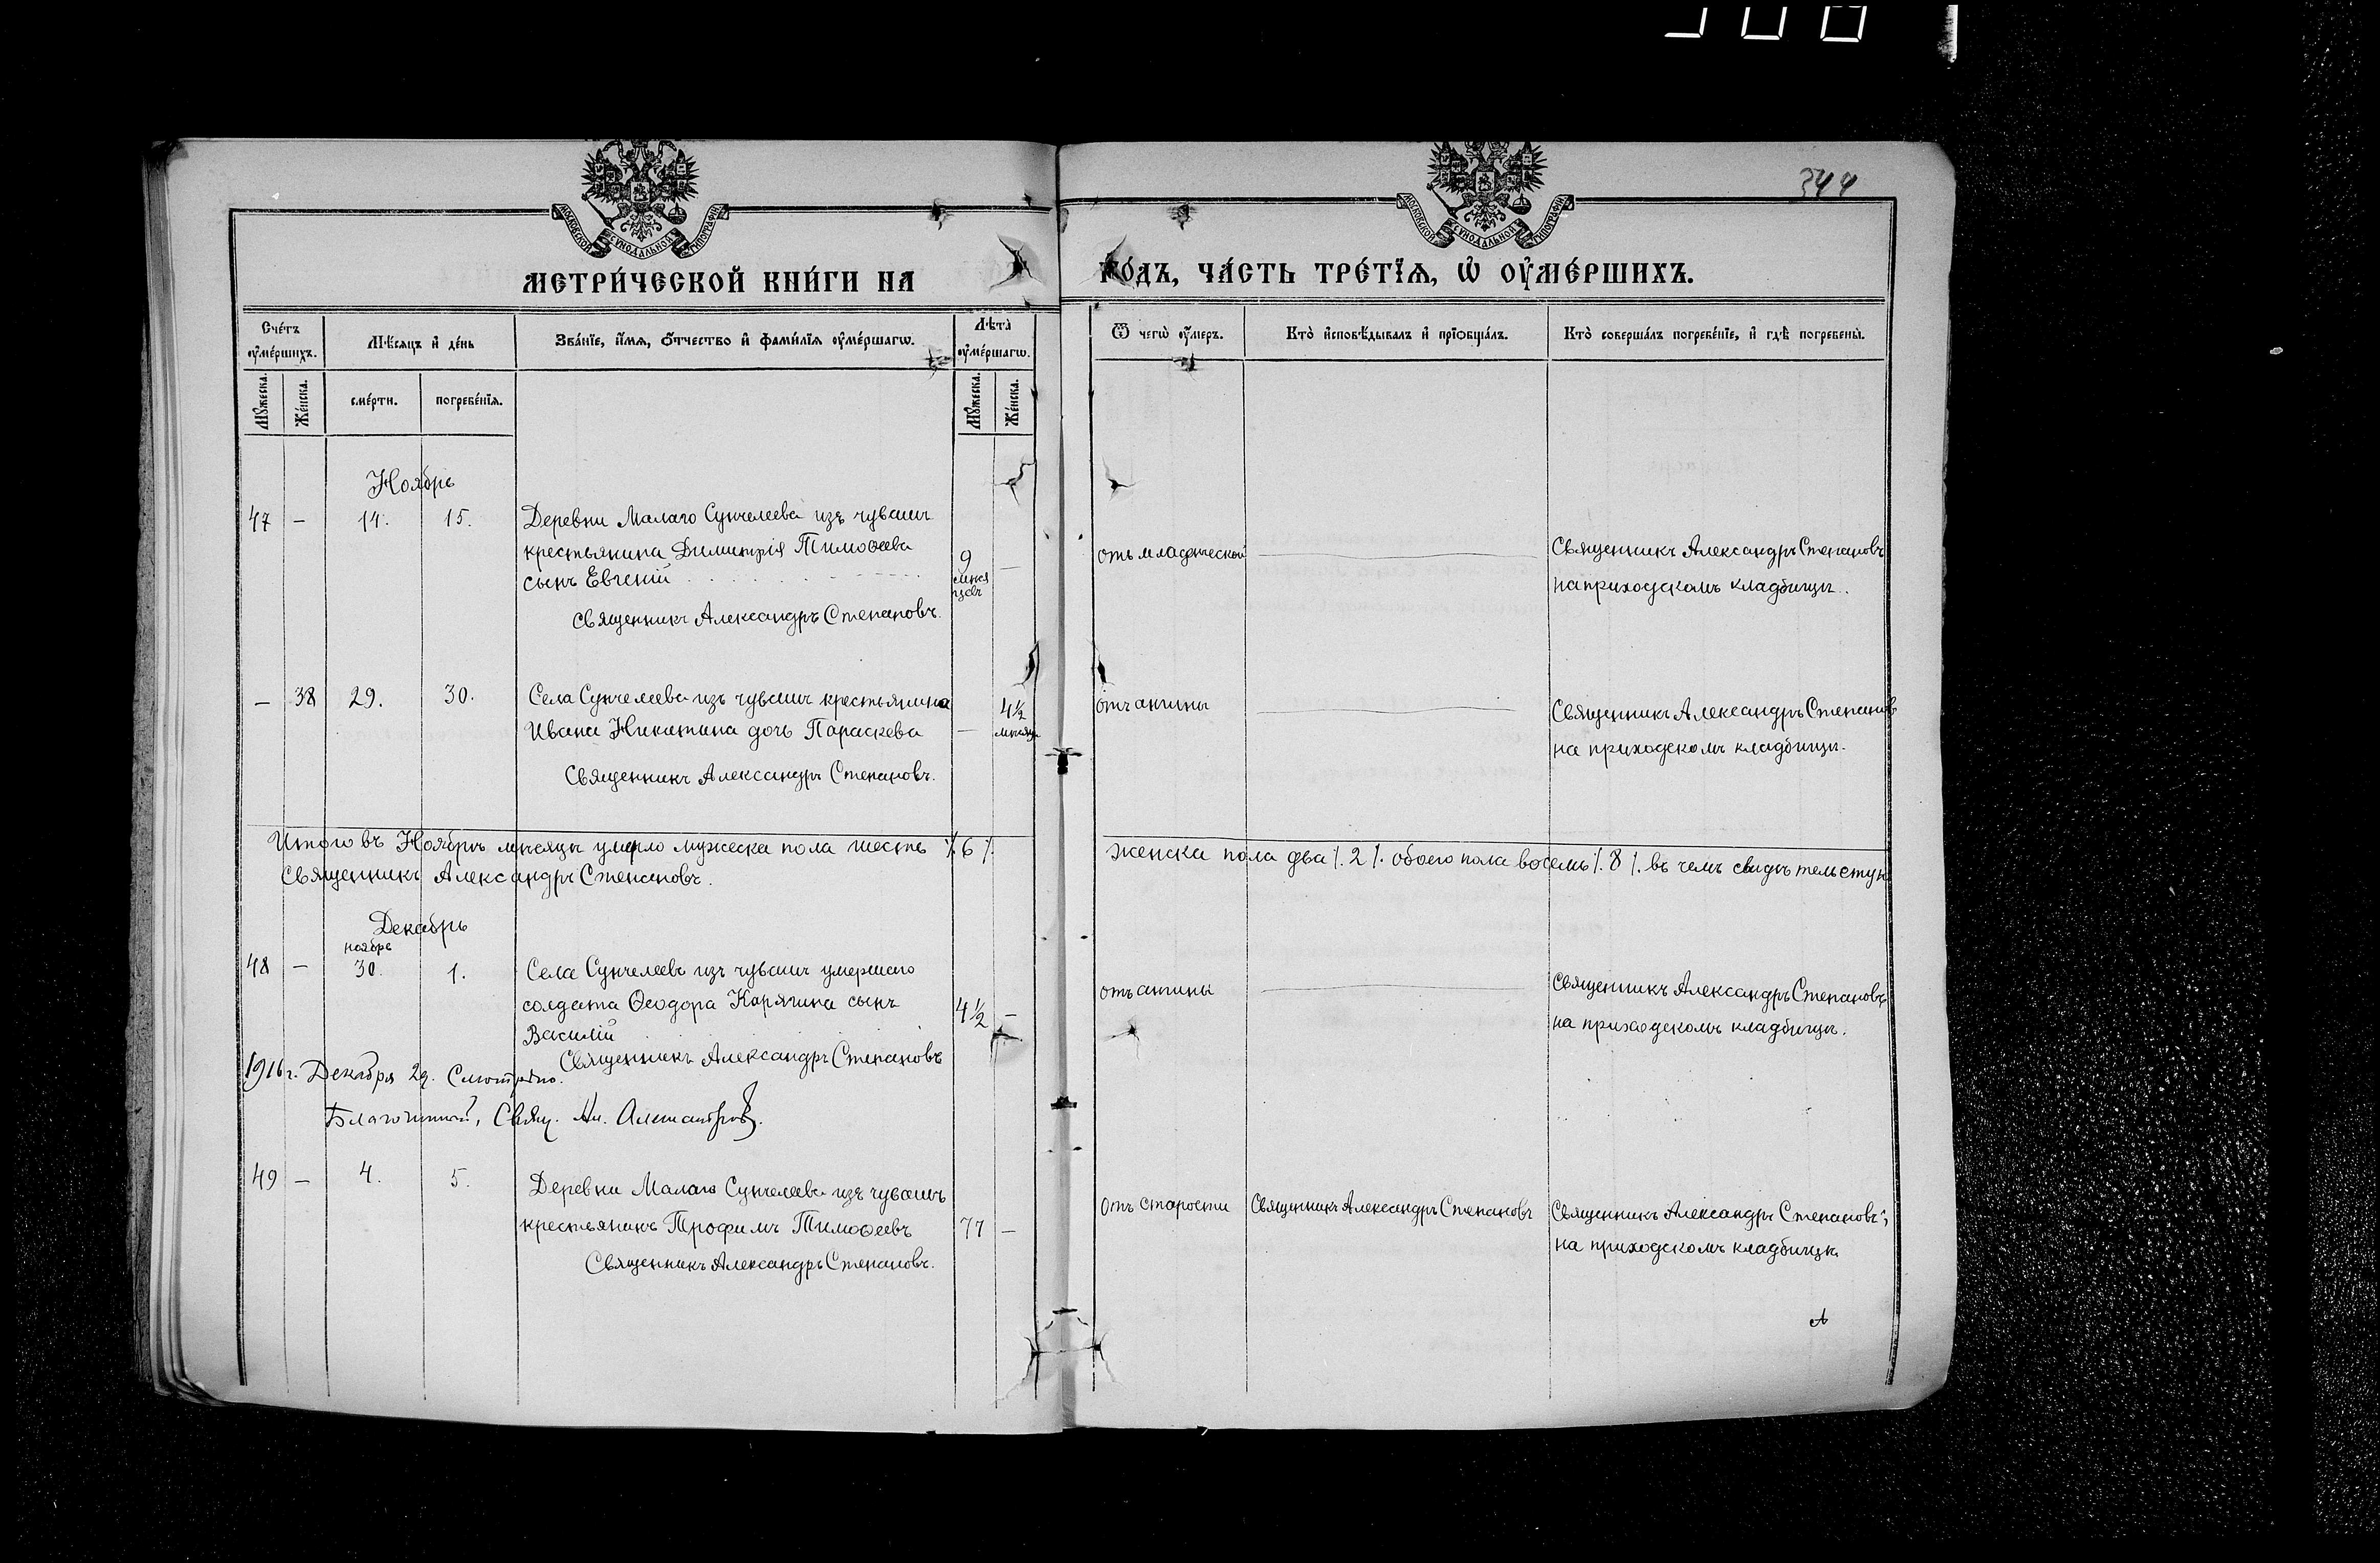 344
МОСКОВСКОЙ СѴНОДАЛЬНОЙ ТИПОГРАФІИ
МОСКОВСКОЙ СѴНОДАЛЬНОЙ ТИПОГРАФІИ
МЕТРИ́ЧЕСКОЙ КНИ́ГИ НА
ГО́ДЪ, ЧА́СТЬ ТРЕ́ТЇѦ, Ѡ҆ ОУ҆МЕ́РШИХЪ.
Сче́тъ оу҆ме́ршихъ.
Мѣ́сѧцъ и҆ де́нь
Зва́нїе, и҆́мѧ, ѻ҆́тчество и҆ фами́лїѧ оу҆ме́ршагѡ.
Лѣ́та оу҆ме́ршагѡ.
Ѿ чегѡ̀ оу҆́меръ.
Кто̀ и҆сповѣ́дывалъ и҆ прїѡбща́лъ.
Кто̀ соверша́лъ погребе́нїе, и҆ гдѣ̀ погребены̀.
Мꙋ́жеска.
Же́нска.
сме́рти.
погребе́нїѧ.
Мꙋ́жеска.
Же́нска.
Ноябрь
47 — 14. 15. Деревни Малаго Сунчелеева изъ чувашъ
крестьянина Димитрія Тимоѳеева
сынъ Евгеній 9 мѣсяцевъ —
Священникъ Александръ Степановъ.
отъ младенческой
Священникъ Александръ Степановъ
на приходскомъ кладбищѣ.
— 38 29. 30. Села Сунчелеева изъ чувашъ крестьянина
Ивана Никитина дочь Параскева — 4½ мѣсяца
Священникъ Александръ Степановъ.
отъ ангины
Священникъ Александръ Степановъ
на приходскомъ кладбищѣ.
Итого въ Ноябрѣ мѣсяцѣ умерло мужеска пола шесть ./. 6 ./. женска пола два ./. 2 ./. обоего пола восемь ./. 8 ./. въ чемъ свидѣтельствую
Священникъ Александръ Степановъ.
Декабрь
ноября
48 — 30. 1. Села Сунчелеева изъ чувашъ умершаго
солдата Ѳеодора Карягина сынъ
Василій 4½ —
Священникъ Александръ Степановъ
отъ ангины
Священникъ Александръ Степановъ
на приходскомъ кладбищѣ.
1916 г. Декабря 29. Смотрѣно.
Благочинный, Свящ. Александровъ.
49 — 4. 5. Деревни Малаго Сунчелеева изъ чувашъ
крестьянинъ Трофимъ Тимоѳеевъ 77 —
Священникъ Александръ Степановъ.
отъ старости
Священникъ Александръ Степановъ
Священникъ Александръ Степановъ,
на приходскомъ кладбищѣ